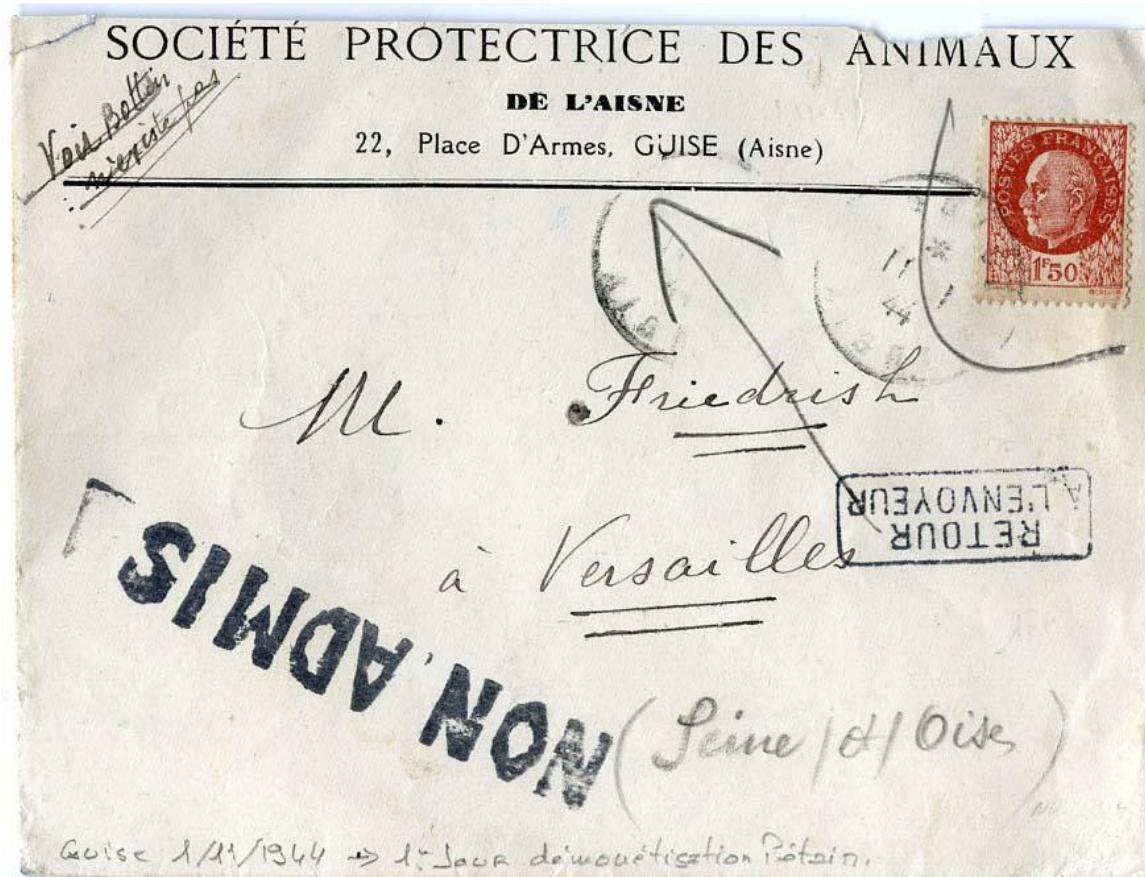 SOCIÉTÉ PROTECTRICE DES ANIMAUX
DE L'AISNE
22, Place D'Armes, GUISE (Aisne)
Voir Bottin
n'existe pas
POSTES FRANÇAISES
1F50
11
44
M. Friedrish
RETOUR
À L'ENVOYEUR
à Versailles
NON ADMIS
(Seine /et/ Oise)
Guise 1/11/1944 → 1er Jour démonétisation Pétain.